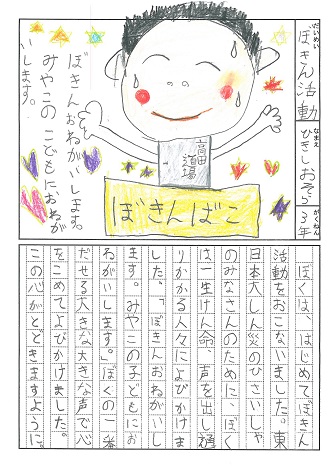 だいめい
ぼきん活動
なまえ
がくねん
3年
ぼきんおねがいします。
みやこの こどもに、おねが
いします。
高田
道場
ぼきんばこ
ぼくは、はじめてぼきん
活動をおこないました。東
日本大しん災のひさいしゃ
のみなさんのために、ぼく
は一生けん命、声を出し通
りかかる人々によびかけま
した。「ぼきんおねがいし
ます。みやこの子どもにお
ねがいします。」ぼくの一番
だせる大きな大きな声で心
をこめてよびかけました。
この心がとどきますように。